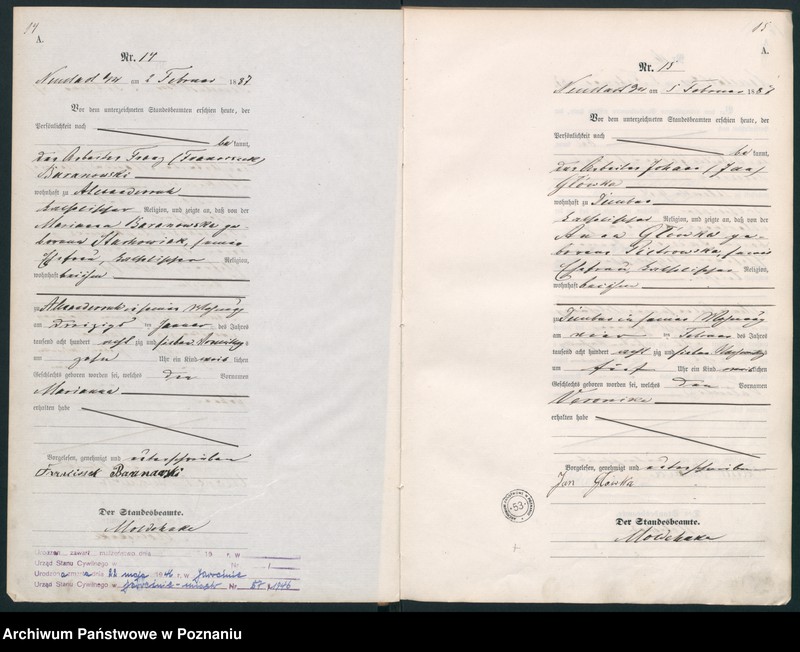 14
A.
Nr. 14
Neustad a/W am 2 Februar 1887
Vor dem unterzeichneten Standesbeamten erschien heute, der
Persönlichkeit nach
be kannt,
der Arbeiter Franz (Franciszek)
Baranowski
wohnhaft zu
katholischer Religion, und zeigte an, daß von der
Marianna Baranowska ge-
borene Stachowiak, seiner
Ehefrau, katholischer Religion,
wohnhaft bei ihm
zu in seiner Wohnung
am dreißigst ten Januar des Jahres
tausend acht hundert acht zig und sieben Vormittags
um zehn Uhr ein Kind weib lichen
Geschlechts geboren worden sei, welches den Vornamen
Marianna
erhalten habe
Vorgelesen, genehmigt und unterschrieben
Baranowski
Der Standesbeamte.
zawarł małżeństwo dnia 19 r. w
Urząd Stanu Cywilnego w Nr /
zmarła dnia 22 maja 1946 r. w Jarocinie
Urząd Stanu Cywilnego w Jarocinie-miasto Nr 88 / 1946
15
A.
Nr. 15
Neustad a/W am 5 Februar 1887
Vor dem unterzeichneten Standesbeamten erschien heute, der
Persönlichkeit nach
be kannt,
der Arbeiter Johann (Jan)
Główka
wohnhaft zu Dembno
katholischer Religion, und zeigte an, daß von der
Anna Główka ge-
borene Piotrowska, seiner
Ehefrau, katholischer Religion,
wohnhaft bei ihm
zu Dembno in seiner Wohnung
am vier ten Februar des Jahres
tausend acht hundert acht zig und sieben
um fünf Uhr ein Kind weib lichen
Geschlechts geboren worden sei, welches den Vornamen
Veronika
erhalten habe
Vorgelesen, genehmigt und unterschrieben
Jan Główka
53
Der Standesbeamte.
Archiwum Państwowe w Poznaniu